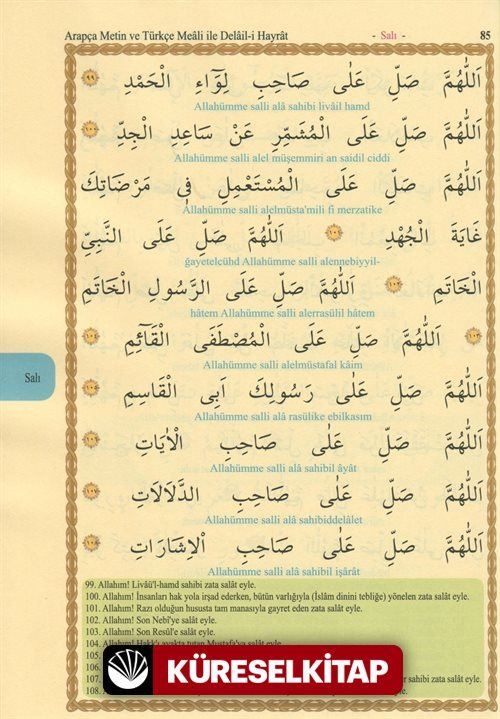 Arapça Metin ve Türkçe Meâli ile Delâil-i Hayrât - Salı - 85
اَللّٰهُمَّ صَلِّ عَلٰى صَاحِبِ لِوَٓاءِ الْحَمْدِ ٩٩
Allahümme salli alâ sahibi livâil hamd
اَللّٰهُمَّ صَلِّ عَلَى الْمُشَمِّرِ عَنْ سَاعِدِ الْجِدِّ ١٠٠
Allahümme salli alel müşemmiri an saidil ciddi
اَللّٰهُمَّ صَلِّ عَلَى الْمُسْتَعْمِلِ فِى مَرْضَاتِكَ
Allahümme salli alelmüsta'mili fi merzatike
غَايَةَ الْجُهْدِ اَللّٰهُمَّ صَلِّ عَلَى النَّبِىِّ
ğayetelcühd Allahümme salli alennebiyyil-
الْخَاتَمِ اَللّٰهُمَّ صَلِّ عَلَى الرَّسُولِ الْخَاتَمِ
hâtem Allahümme salli alerrasülil hâtem
اَللّٰهُمَّ صَلِّ عَلَى الْمُصْطَفَى الْقَٓائِمِ
Allahümme salli alelmüstafal kâim
اَللّٰهُمَّ صَلِّ عَلٰى رَسُولِكَ اَبِى الْقَاسِمِ
Allahümme salli alâ rasülike ebilkasım
Salı
اَللّٰهُمَّ صَلِّ عَلٰى صَاحِبِ الْاٰيَاتِ
Allahümme salli alâ sahibil âyât
اَللّٰهُمَّ صَلِّ عَلٰى صَاحِبِ الدَّلَالَاتِ
Allahümme salli alâ sahibiddelâlet
اَللّٰهُمَّ صَلِّ عَلٰى صَاحِبِ الْاِشَارَاتِ
Allahümme salli alâ sahibil işârât
99. Allahım! Livâü'l-hamd sahibi zata salât eyle.
100. Allahım! İnsanları hak yola irşad ederken, bütün varlığıyla (İslâm dinini tebliğe) yönelen zata salât eyle.
101. Allahım! Razı olduğun hususta tam manasıyla gayret eden zata salât eyle.
102. Allahım! Son Nebî'ye salât eyle.
103. Allahım! Son Resûl'e salât eyle.
104. Allahım! Hakk'ı ayakta tutan Mustafa'ya salât eyle.
105.
106.
107. sahibi zata salât eyle.
108.
KÜRESELKİTAP